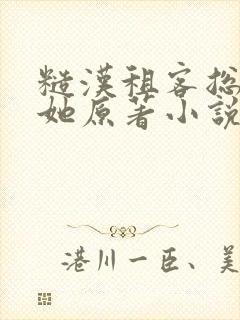 糙漢租客捴
她原著小說
港川一臣、美